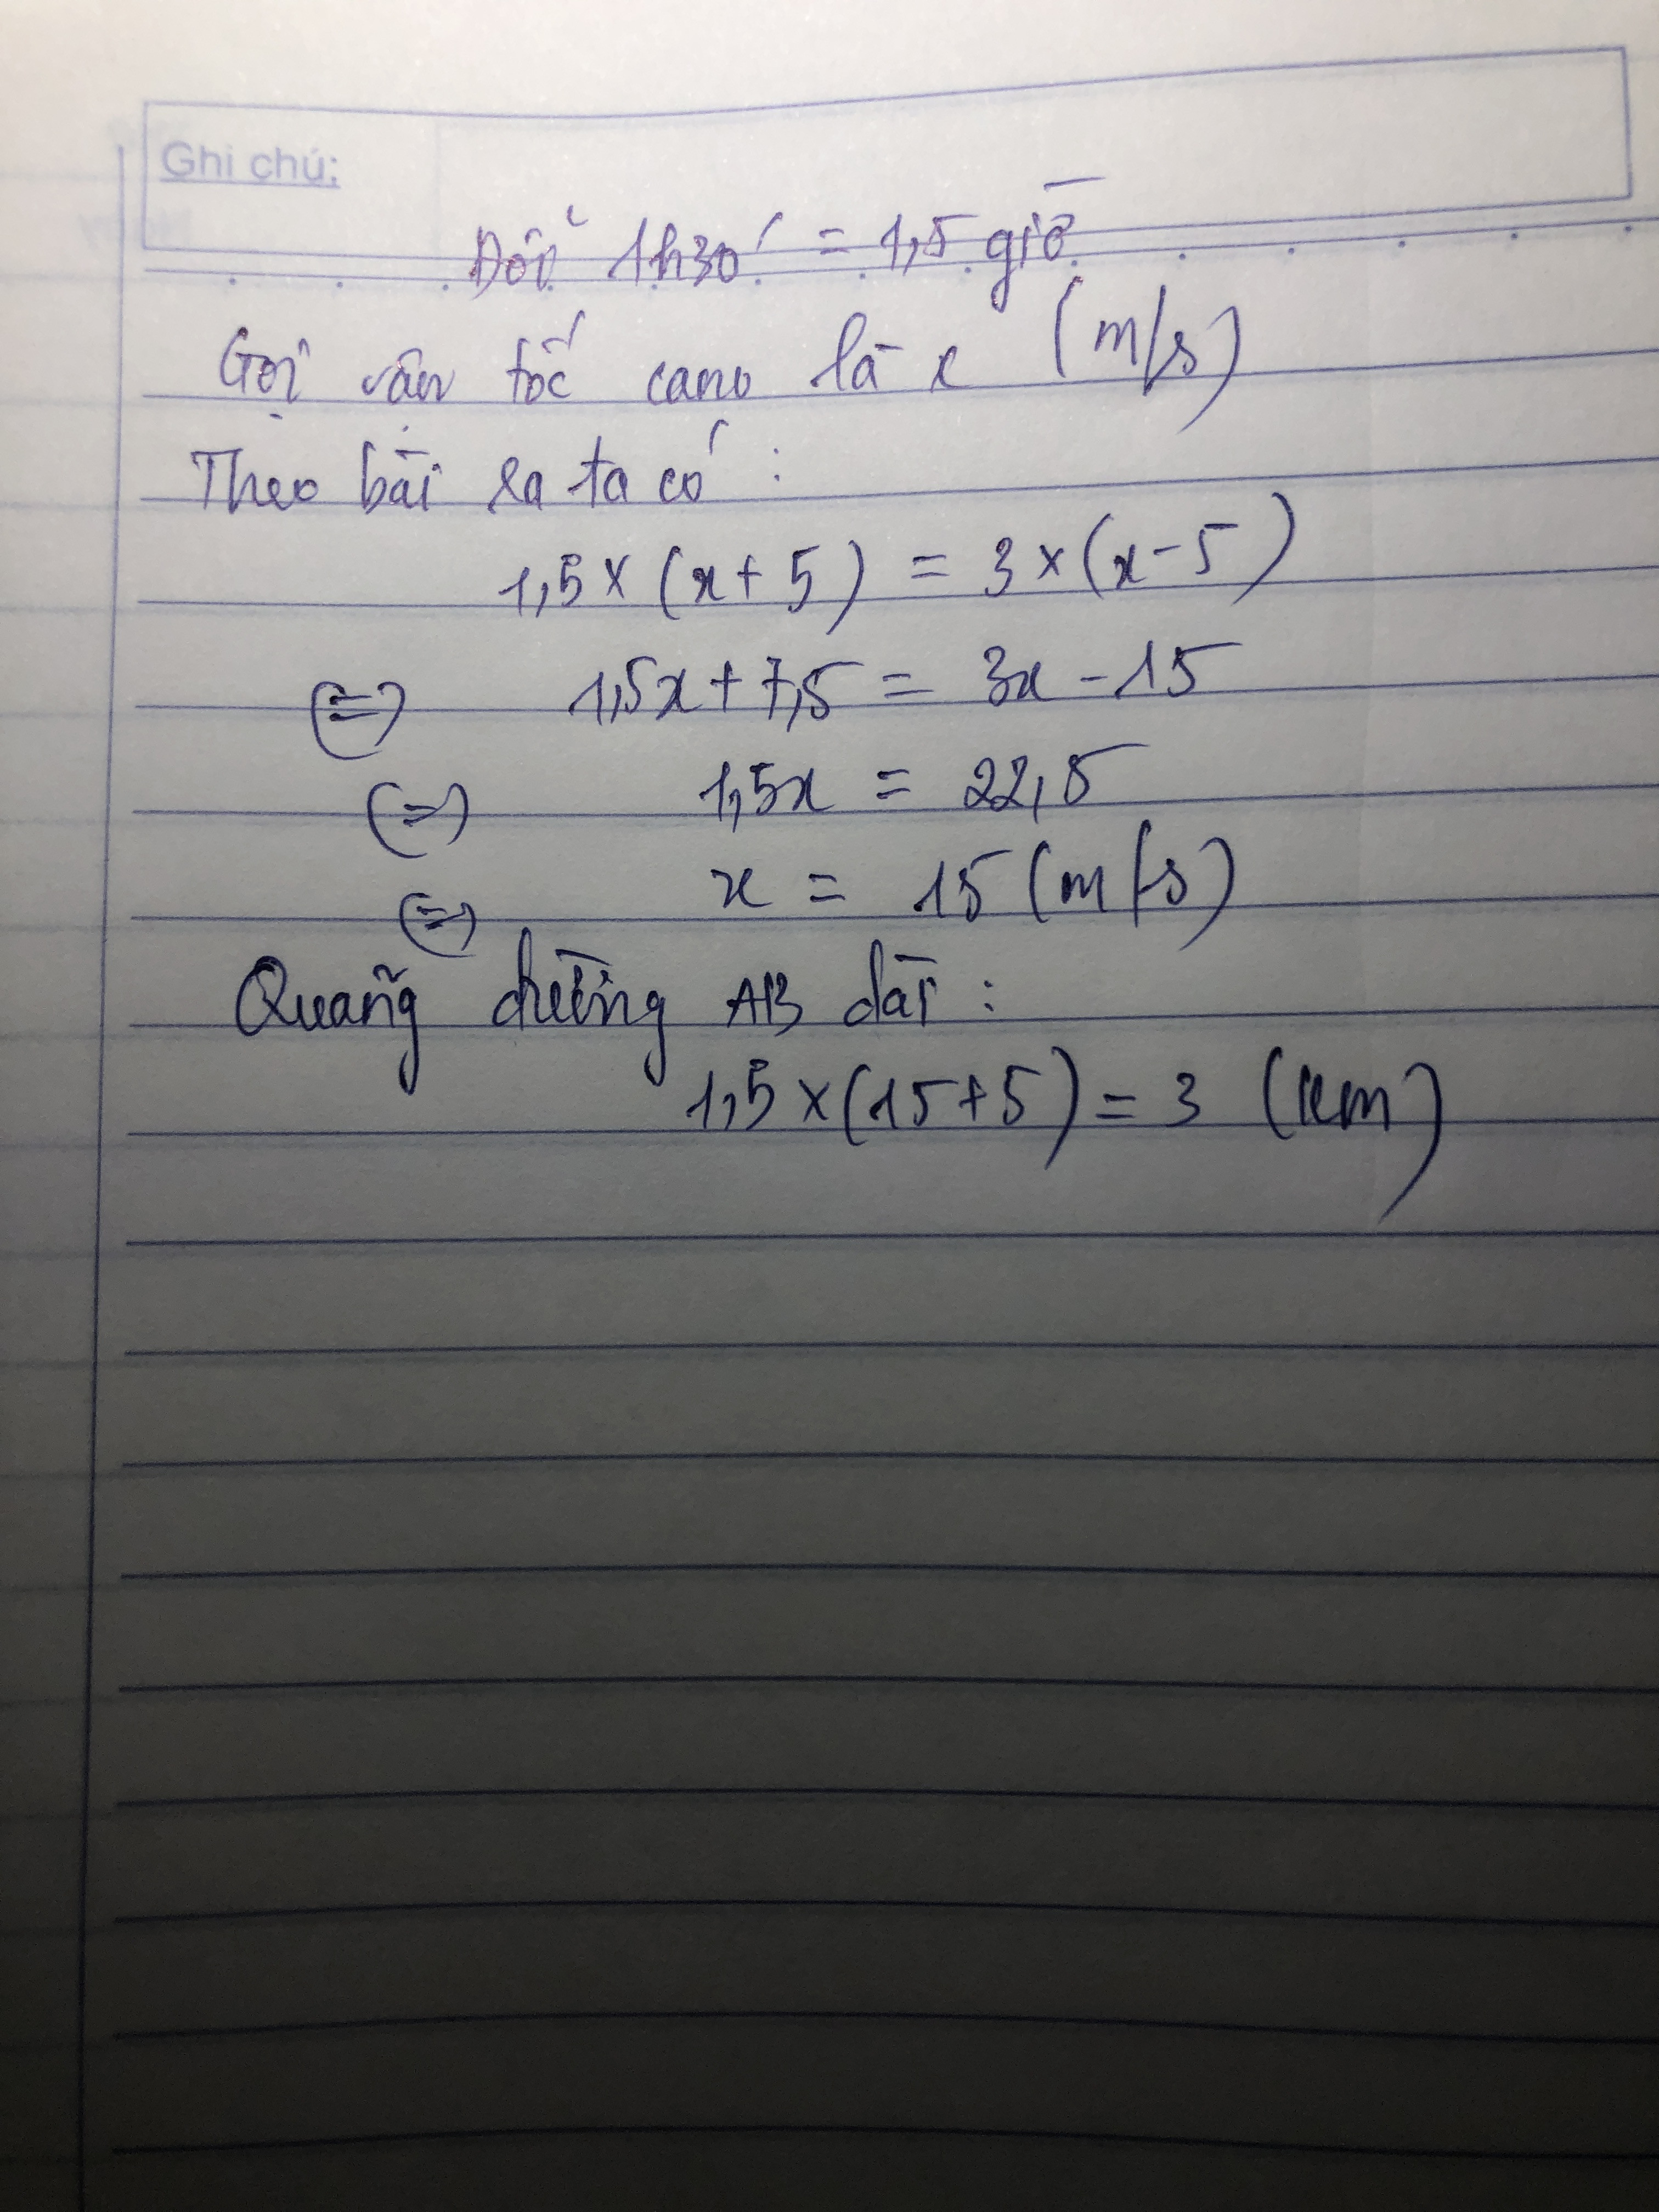 Ghi chú:
Đổi 1h30' = 1,5 giờ
Gọi vận tốc cano là x (m/s)
Theo bài ra ta có :
1,5 × (x + 5) = 3 × (x - 5)
(=) 1,5x + 7,5 = 3x - 15
(=) 1,5x = 22,5
(=) x = 15 (m/s)
Quãng đường AB dài :
1,5 × (15 + 5) = 3 (km)